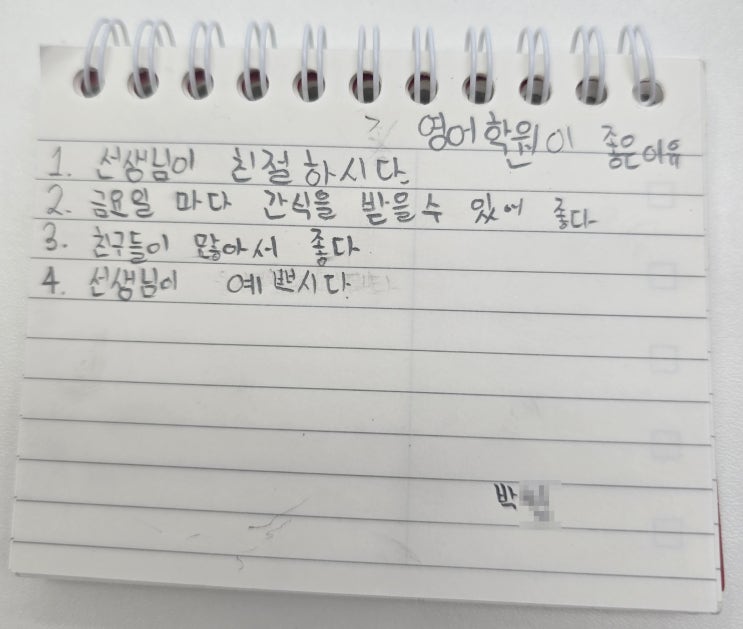 영어학원이 좋은이유
1. 선생님이 친절하시다
2. 금요일 마다 간식을 받을수 있어 좋다
3. 친구들이 많아서 좋다
4. 선생님이 예쁘시다
박